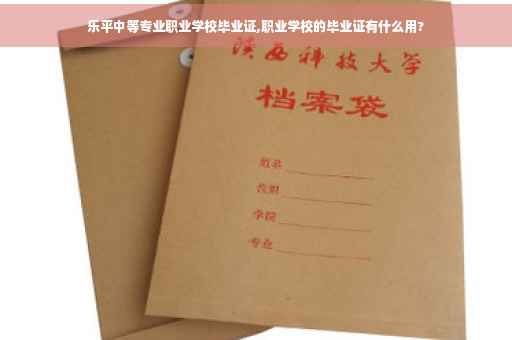 乐平中等专业职业学校毕业证,职业学校的毕业证有什么用?
陕西科技大学
档案袋
姓名
学院
专业